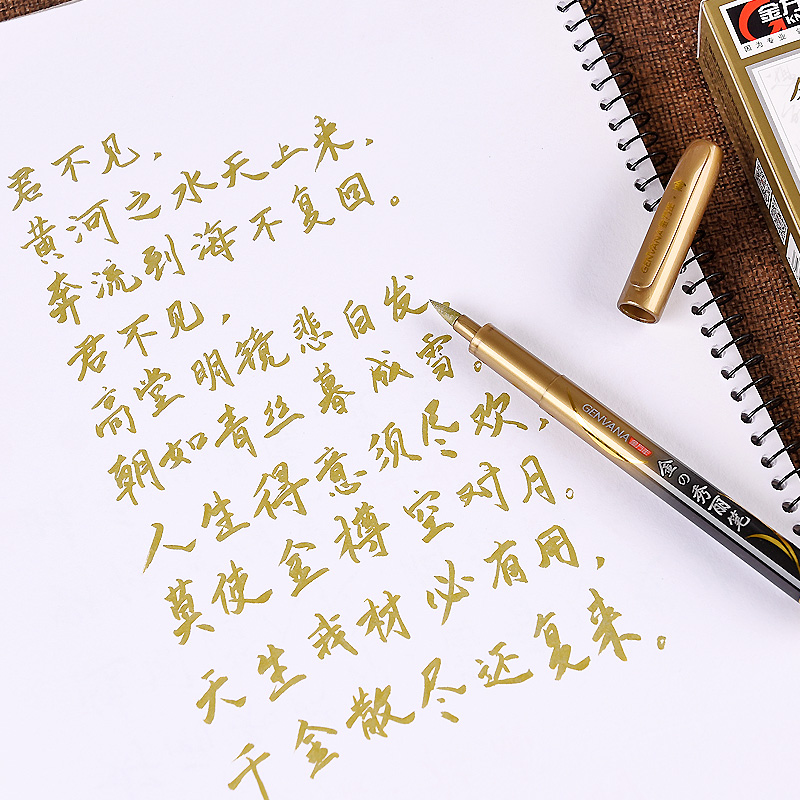 君不见，
黄河之水天上来，
奔流到海不复回。
君不见，
高堂明镜悲白发
朝如青丝暮成雪。
人生得意须尽欢，
莫使金樽空对月。
天生我材必有用，
千金散尽还复来。
GENVANA
金の秀丽笔
GENVANA
因为专业